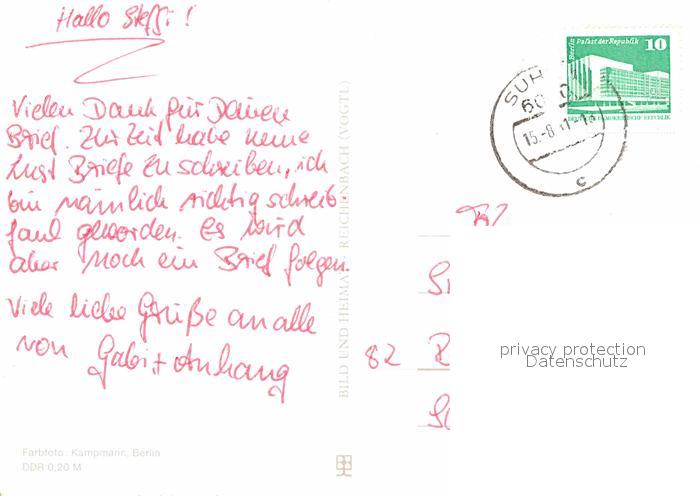 Hallo Steffi!
Vielen Dank für Deinen
Brief. Zur Zeit habe keine
Lust Briefe zu schreiben, ich
bin nämlich richtig schreib-
faul geworden. Es wird
aber noch ein Brief folgen.
Viele liebe Grüße an alle
von Gabi + Anhang
Farbfoto: Kampmann, Berlin
DDR 0,20 M
BILD UND HEIMAT REICHENBACH (VOGTL)
Berlin Palast der Republik
10
DEUTSCHE DEMOKRATISCHE REPUBLIK
SUHL
15.-8.
c
82
privacy protection
Datenschutz